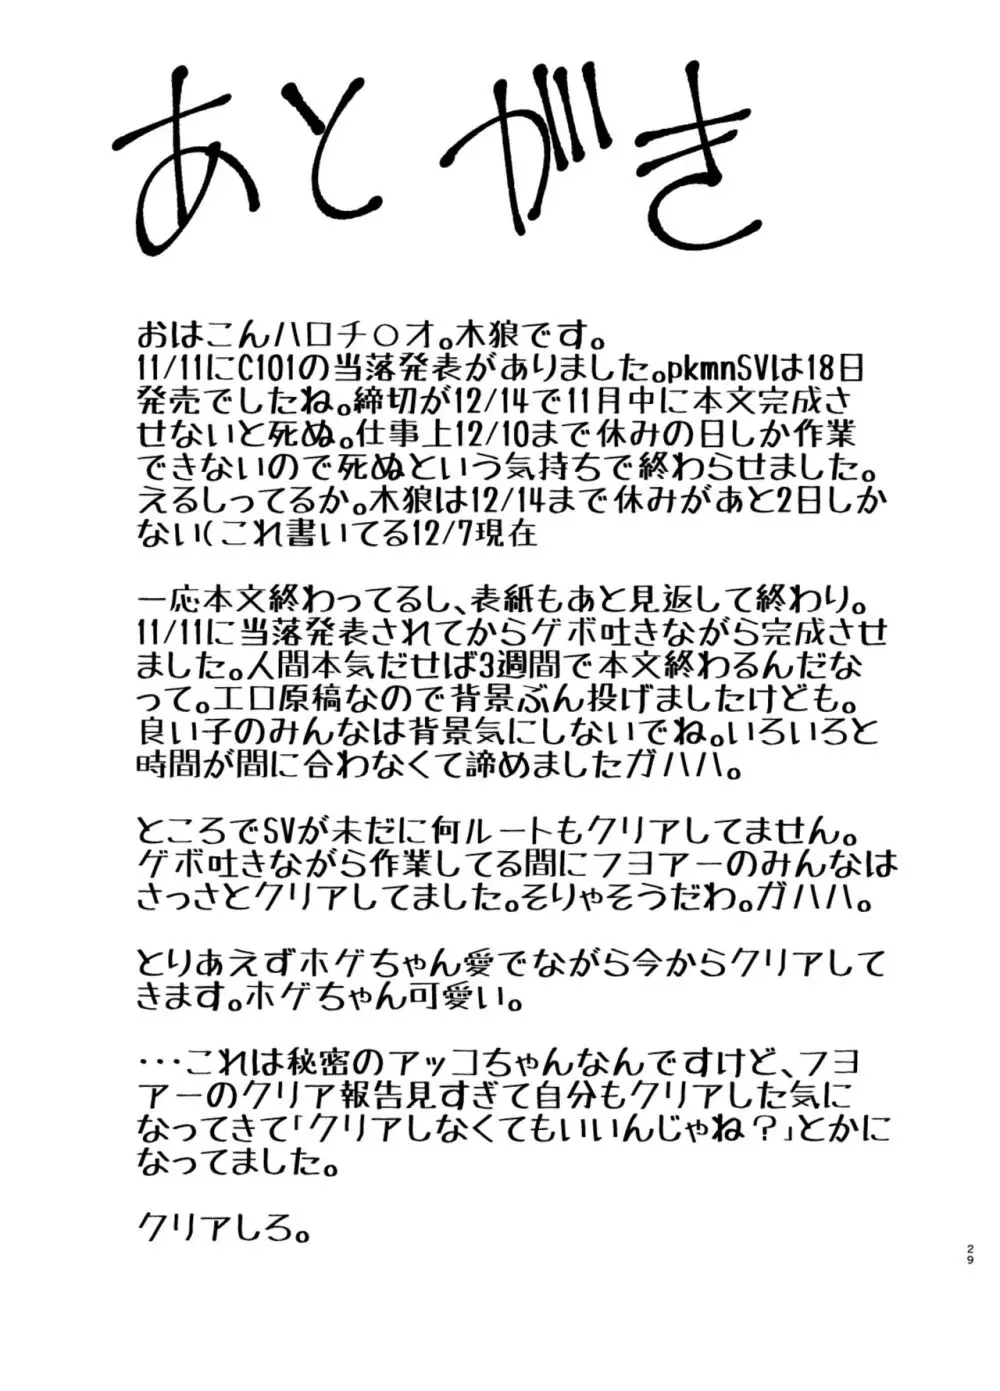 あとがき
おはこんハロチ○オ。木狼です。
11/11にC101の当落発表がありました。pkmnSVは18日
発売でしたね。締切が12/14で11月中に本文完成さ
せないと死ぬ。仕事上12/10まで休みの日しか作業
できないので死ぬという気持ちで終わらせました。
えるしってるか。木狼は12/14まで休みがあと2日しか
ない(これ書いてる12/7現在
一応本文終わってるし、表紙もあと見返して終わり。
11/11に当落発表されてからゲボ吐きながら完成させ
ました。人間本気だせば3週間で本文終わるんだな
って。エロ原稿なので背景ぶん投げましたけども。
良い子のみんなは背景気にしないでね。いろいろと
時間が間に合わなくて諦めましたガハハ。
ところでSVが未だに何ルートもクリアしてません。
ゲボ吐きながら作業してる間にフヨアーのみんなは
さっさとクリアしてました。そりゃそうだわ。ガハハ。
とりあえずホゲちゃん愛でながら今からクリアして
きます。ホゲちゃん可愛い。
・・・これは秘密のアッコちゃんなんですけど、フヨ
アーのクリア報告見すぎて自分もクリアした気に
なってきて「クリアしなくてもいいんじゃね?」とかに
なってました。
クリアしろ。
29